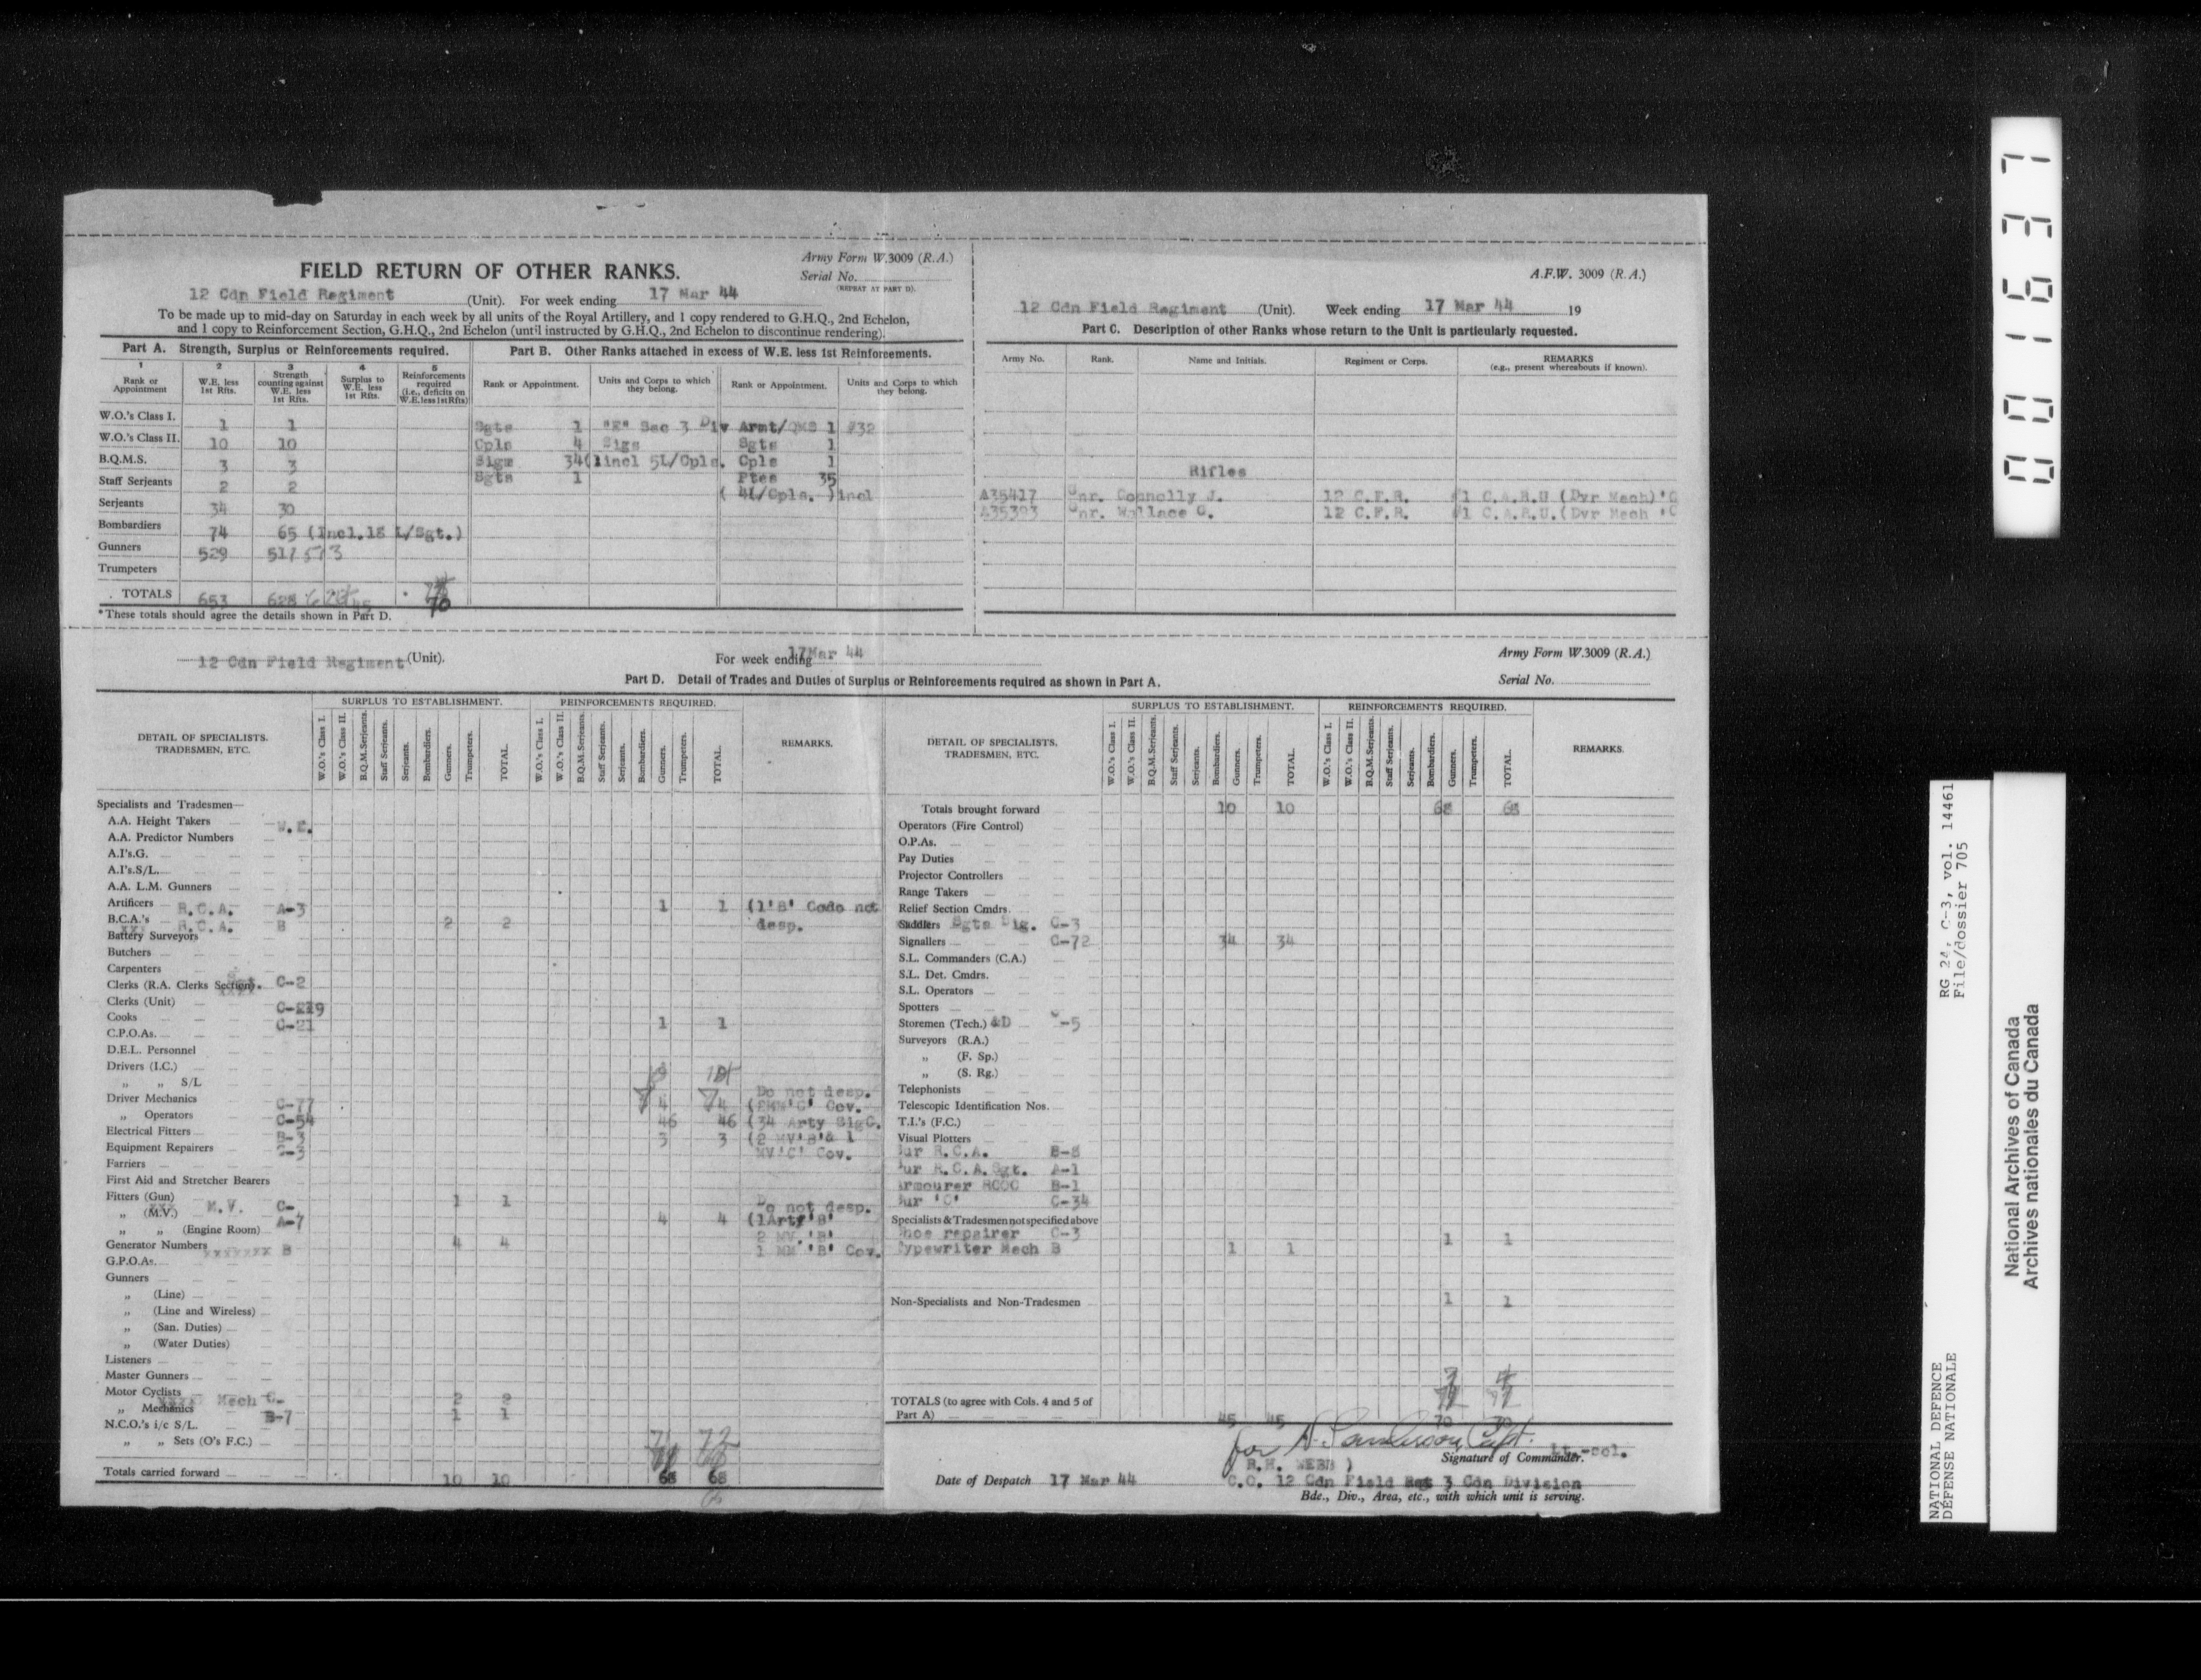 Army Form W.3009 (R.A.)
FIELD RETURN OF OTHER RANKS.
Serial No.
(REPEAT AT PART D).
12 Cdn Field Regiment (Unit). For week ending 17 Mar 44
To be made up to mid-day on Saturday in each week by all units of the Royal Artillery, and 1 copy rendered to G.H.Q., 2nd Echelon,
and 1 copy to Reinforcement Section, G.H.Q., 2nd Echelon (until instructed by G.H.Q., 2nd Echelon to discontinue rendering).
Part A. Strength, Surplus or Reinforcements required.
1 2 3 4 5
Rank or Appointment
W.E. less 1st Rfts.
Strength counting against W.E. less 1st Rfts.
Surplus to W.E. less 1st Rfts.
Reinforcements required (i.e., deficits on W.E. less 1st Rfts)
W.O.'s Class I. 1 1
W.O.'s Class II. 10 10
B.Q.M.S. 3 3
Staff Serjeants 2 2
Serjeants 34 30
Bombardiers 74 65 (Incl.18 L/Sgt.)
Gunners 529 517
Trumpeters
TOTALS 653 628 45 70
*These totals should agree the details shown in Part D.
Part B. Other Ranks attached in excess of W.E. less 1st Reinforcements.
Rank or Appointment. Units and Corps to which they belong. Rank or Appointment. Units and Corps to which they belong.
Sgts 1 "E" Sec 3 Div Armt/QMS 1 #32
Cpls 4 Sigs Sgts 1
Sigm 34 (1incl 5L/Cpls. Cpls 1
Sgts 1 Ptes 35
( 4L/Cpls. )incl
A.F.W. 3009 (R.A.)
12 Cdn Field Regiment (Unit). Week ending 17 Mar 44 19
Part C. Description of other Ranks whose return to the Unit is particularly requested.
Army No. Rank. Name and Initials. Regiment or Corps. REMARKS
(e.g., present whereabouts if known).
Rifles
A35417 Gnr. Connolly J. 12 C.F.R. #1 C.A.R.U (Dvr Mech)'C
A35393 Gnr. Wallace G. 12 C.F.R. #1 C.A.R.U.(Dvr Mech 'C
12 Cdn Field Regiment (Unit). For week ending 17Mar 44
Army Form W.3009 (R.A.)
Part D. Detail of Trades and Duties of Surplus or Reinforcements required as shown in Part A.
Serial No.
SURPLUS TO ESTABLISHMENT. REINFORCEMENTS REQUIRED.
DETAIL OF SPECIALISTS, TRADESMEN, ETC.
W.O.'s Class I. W.O.'s Class II. B.Q.M.Serjeants. Staff Serjeants. Serjeants. Bombardiers. Gunners. Trumpeters. TOTAL.
W.O.'s Class I. W.O.'s Class II. B.Q.M.Serjeants. Staff Serjeants. Serjeants. Bombardiers. Gunners. Trumpeters. TOTAL.
REMARKS.
Specialists and Tradesmen—
A.A. Height Takers W.E.
A.A. Predictor Numbers
A.I's.G.
A.I's.S/L.
A.A. L.M. Gunners
Artificers R.C.A. A-3 1 1 (1'B' Code not
B.C.A.'s R.C.A. B 2 2 desp.
Battery Surveyors
Butchers
Carpenters
Clerks (R.A. Clerks Section). Sgt C-2
Clerks (Unit)
Cooks C-21 1 1
C.P.O.As.
D.E.L. Personnel
Drivers (I.C.)
„ „ S/L
Do not desp.
Driver Mechanics C-77 4 4
„ Operators C-54 46 46 (34 Arty SigC.
Electrical Fitters B-3 3 3 (2 MV'B'& 1
Equipment Repairers C-3 MV'C' Cov.
Farriers
First Aid and Stretcher Bearers
Fitters (Gun) 1 1
„ (M.V.) M.V. C- Do not desp.
„ „ (Engine Room) A-7 4 4 (1Arty'B'
2 MV. 'B'
Generator Numbers B 4 4 1 MM 'B' Cov.
G.P.O.As.
Gunners
„ (Line)
„ (Line and Wireless)
„ (San. Duties)
„ (Water Duties)
Listeners
Master Gunners
Motor Cyclists
„ Mechanics Mech C- 2 2
B-7 1 1
N.C.O.'s i/c S/L.
„ „ Sets (O's F.C.)
Totals carried forward 10 10 68 68
SURPLUS TO ESTABLISHMENT. REINFORCEMENTS REQUIRED.
DETAIL OF SPECIALISTS, TRADESMEN, ETC.
W.O.'s Class I. W.O.'s Class II. B.Q.M.Serjeants. Staff Serjeants. Serjeants. Bombardiers. Gunners. Trumpeters. TOTAL.
W.O.'s Class I. W.O.'s Class II. B.Q.M.Serjeants. Staff Serjeants. Serjeants. Bombardiers. Gunners. Trumpeters. TOTAL.
REMARKS.
Totals brought forward 10 10 68 68
Operators (Fire Control)
O.P.As.
Pay Duties
Projector Controllers
Range Takers
Relief Section Cmdrs.
Saddlers Sgts Sig. C-3
Signallers C-72 34 34
S.L. Commanders (C.A.)
S.L. Det. Cmdrs.
S.L. Operators
Spotters
Storemen (Tech.) &D C-5
Surveyors (R.A.)
„ (F. Sp.)
„ (S. Rg.)
Telephonists
Telescopic Identification Nos.
T.I.'s (F.C.)
Visual Plotters
Sur R.C.A. B-8
Sur R.C.A.Sgt. A-1
Armourer RCOC B-1
Sur 'C' C-34
Specialists & Tradesmen not specified above
Shoe repairer C-3 1 1
Typewriter Mech B 1 1
Non-Specialists and Non-Tradesmen 1 1
TOTALS (to agree with Cols. 4 and 5 of
Part A) 45 45 70 70
for Capt. Lt.-Col.
Signature of Commander.
R.H. WEBB )
Date of Despatch 17 Mar 44 C.O. 12 Cdn Field Reg 3 Cdn Division
Bde., Div., Area, etc., with which unit is serving.
001637
NATIONAL DEFENCE RG 24, C-3, vol. 14461
DÉFENSE NATIONALE File/dossier 705
National Archives of Canada
Archives nationales du Canada